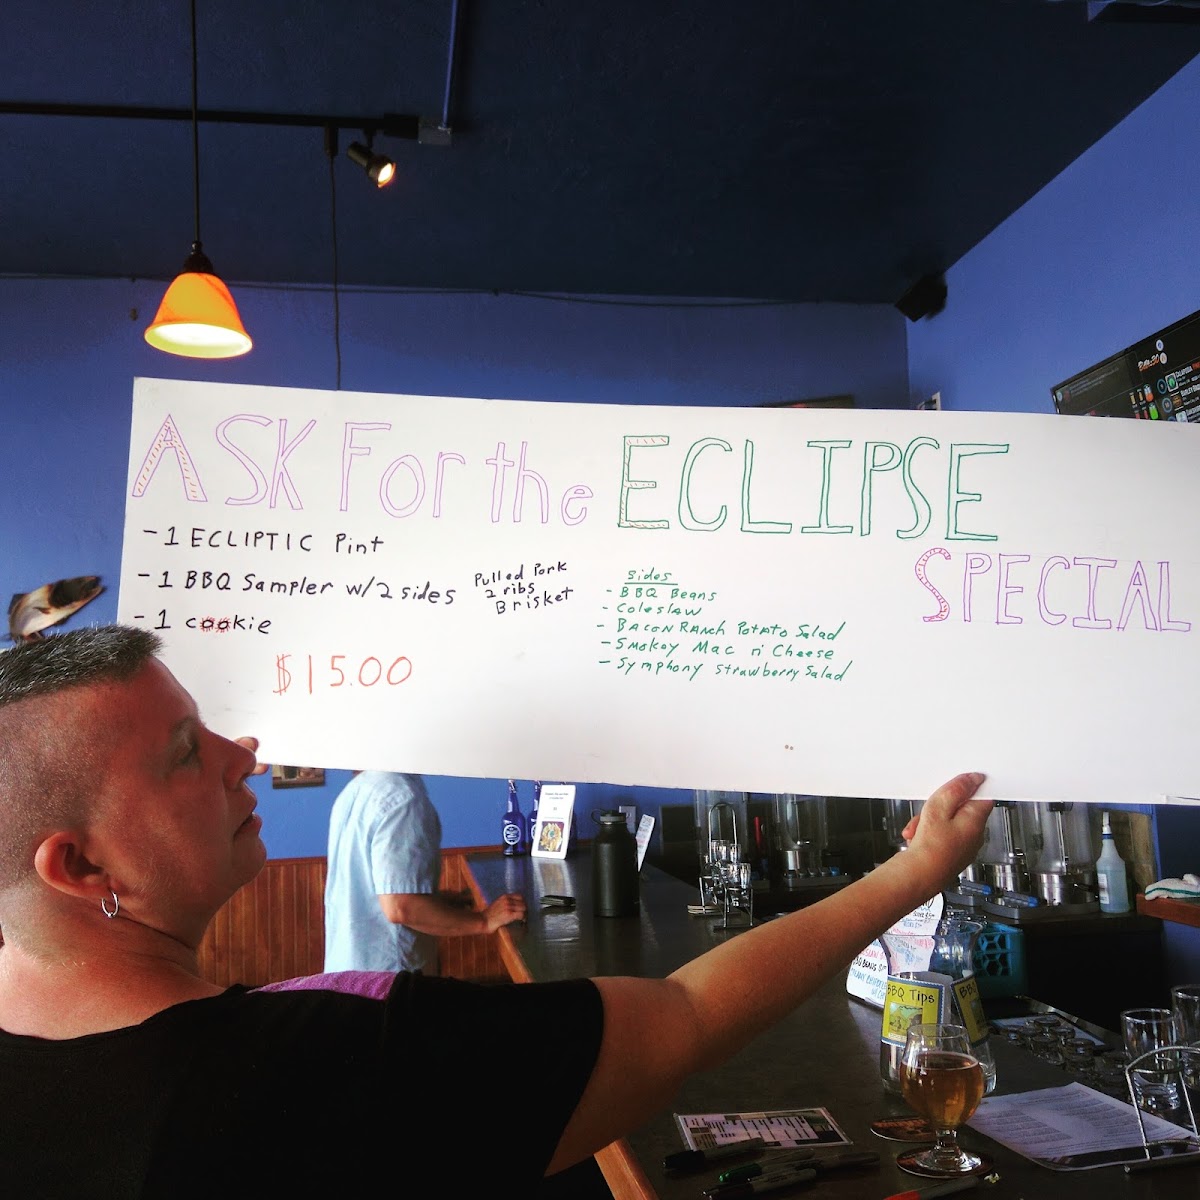 ASK For the ECLIPSE
SPECIAL
- 1 ECLIPTIC Pint
- 1 BBQ Sampler w/2 sides
Pulled Pork
2 ribs
Brisket
- 1 cookie
$15.00
Sides
- BBQ Beans
- Coleslaw
- BACON RANCH POTATO Salad
- Smokey Mac n' Cheese
- Symphony Strawberry Salad
BBQ Tips